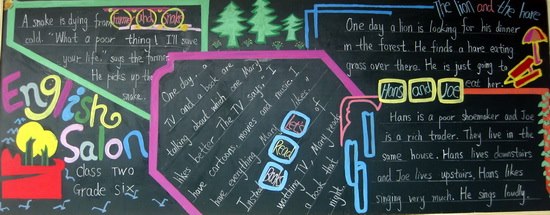 farmer and snake
A snake is dying from
cold. "What a poor thing! I'll save
your life." says the farmer.
He picks up the
snake.
English
Salon
Class Two
Grade six
One day a
TV and a book are
talking about which one Mary
likes better. The TV says "I
have cartoons, movies and music. I
have everything Mary likes."
Instead of
watching TV, Mary reads
a book that
night.
Let's
Read
Book
The lion and the hare
One day a lion is looking for his dinner
in the forest. He finds a hare eating
grass over there. He is just going to
eat her.
Hans and Joe
Hans is a poor shoemaker and Joe
is a rich trader. They live in the
same house. Hans lives downstairs
and Joe lives upstairs. Hans likes
singing very much. He sings loudly.